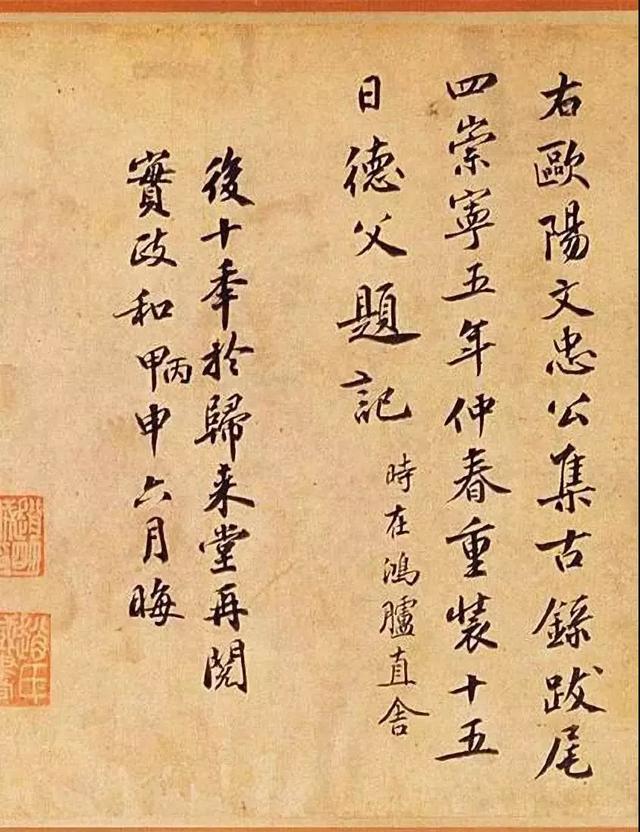 右歐陽文忠公集古錄跋尾
四崇寧五年仲春重裝十五
日德父題記
時在鴻臚直舍
後十年於歸來堂再閱
實政和甲丙申六月晦